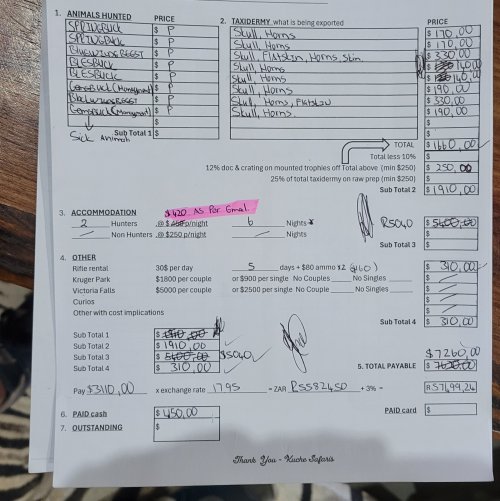 1. ANIMALS HUNTED PRICE 2. TAXIDERMY what is being exported PRICE
SPRINGBUCK $ P Skull, Horns $ 170,00
SPRINGBUCK $ P Skull, Horns $ 170,00
BLUEWILDEBEEST $ P Skull, Flatskin, Horns, Skin $ 330,00
BLESBUCK $ P Skull Horns $ 140,00
BLESBUCK $ P Skull, Horns $ 140,00
GEMSBUCK (Management) $ P Skull, Horns $ 190,00
$ P Skull, Horns, Flatskin $ 330,00
GEMSBUCK (Management) $ P Skull, Horns. $ 190,00
$ $
Sick Animal Sub Total 1 $ $
TOTAL $ 1660,00
Total less 10%
12% doc & crating on mounted trophies off Total above (min $250) $ 250,00
25% of total taxidermy on raw prep (min $250) $
Sub Total 2 $ 1910,00
$420 As Per Email.
3. ACCOMMODATION
2 Hunters ,@ $ p/night 6 Nights R5040 $ 5400,00
Non Hunters ,@ $250 p/night Nights
Sub Total 3 $
4. OTHER
Rifle rental 30$ per day 5 days + $80 ammo x2 (160) $ 310,00
Kruger Park $1800 per couple or $900 per single No Couples No Singles $
Victoria Falls $5000 per couple or $2500 per single No Couple No Singles $
Curios $
Other with cost implications $
Sub Total 4 $ 310,00
Sub Total 1 $
Sub Total 2 $ 1910,00
Sub Total 3 $ 5400,00 $5040
Sub Total 4 $ 310,00
$7260,00
5. TOTAL PAYABLE $ 7620,00
Pay $3110,00 x exchange rate 17.95 = ZAR R55824.50 + 3% = R57499,24
6. PAID cash $ 450,00 PAID card $
7. OUTSTANDING $
Thank You - Kuche Safaris